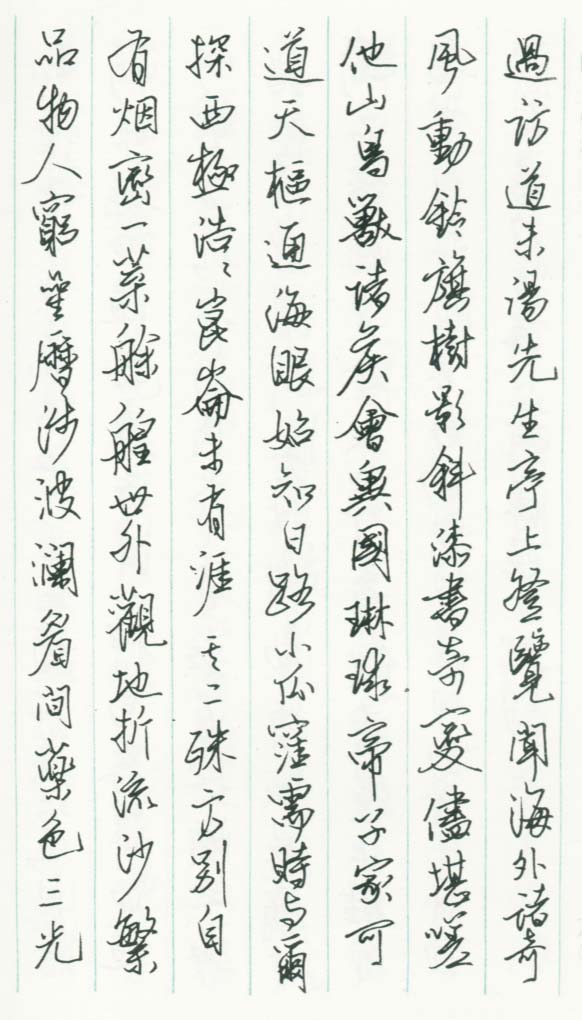 過訪道未湯先生亭上登覽聞海外諸奇
風動鈴旗樹影斜漆書奇變儘堪嗟
他山鳥獸諸侯會異國琳球帝子家可
道天樞通海眼始知日路小瓜窪需時与爾
探西極浩〻崑崙未有涯 其二 殊方別自
有烟巒一葉艅艎世外觀地折流沙繁
品物人窮星曆涉波瀾眉間藥色三光